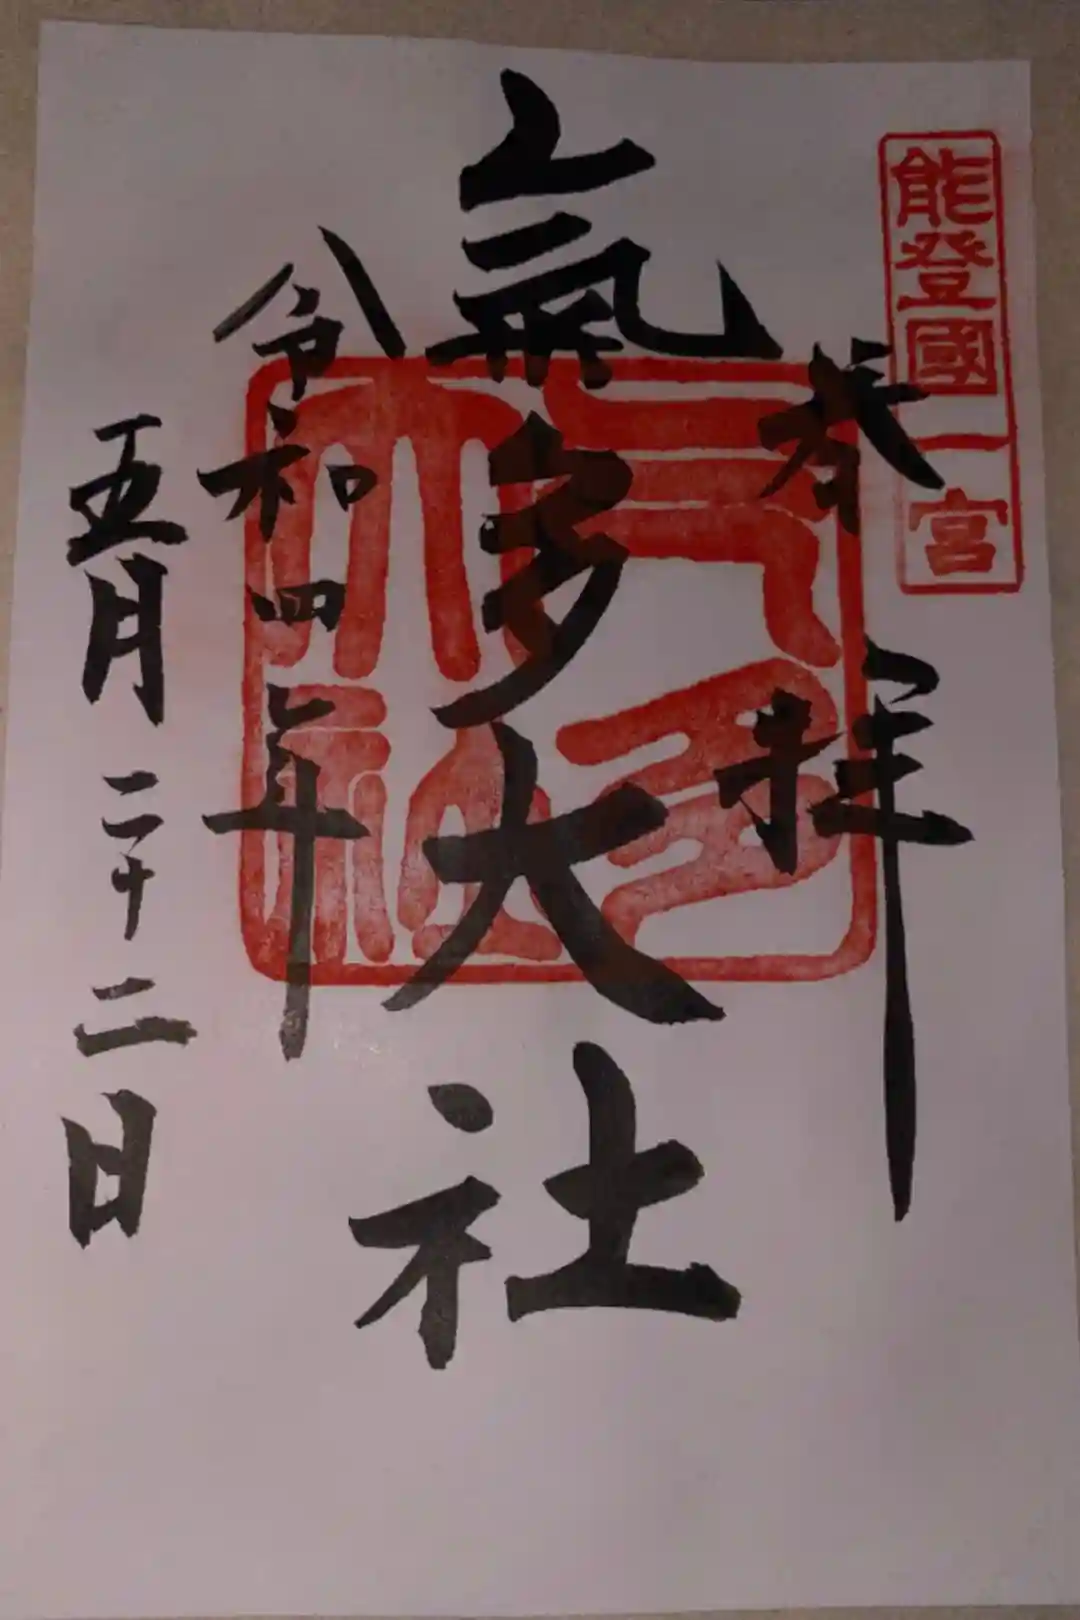 能登國一宮
奉拝
氣多大社
令和四年
五月二十二日
氣多大社